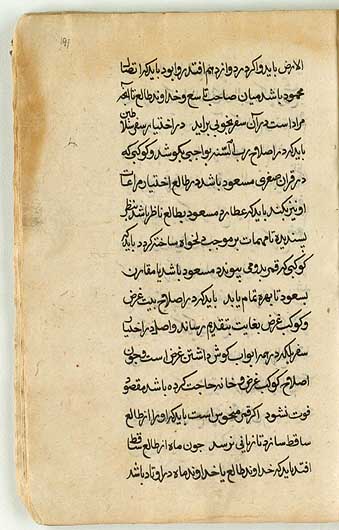 الارض باید و اگر در دوازدهم افتد روا بود باید که اتصال
محمود باشد میان صاحب تاسع و خداوند طالع تا آنچه
مراد است در آن سفر بخوبی برآید در اختیار سفر سلاطین
باید که در اصلاح رب السنه واجبی بکوشد و کوکبی که
در قران صغری مسعود باشد در طالع اختیار مراعات
او نیز بکند باید که عطارد مسعود بطالع ناظر باشد بنظر
پسندیده تا مهمات بر موجب دلخواه ساخته گردد باید که
کوکبی که قمر بدو می پیوندد مسعود باشد یا مقارن
بسعود تا بهره تمام یابد باید که در اصلاح بیت غرض
و کوکب غرض بغایت متقدم رساند و اصل در اختیار
سفر بلکه در همه ابواب کوش داشتن غرض است و چون
اصلاح کوکب غرض و خانه حاجت کرده باشد مقصود
فوت نشود اگر قمر منحوس است باید که او را از طالع
ساقط سازد تا زیانی نرسد چون ماه از طالع ساقط
افتد باید که خداوند طالع یا خداوند ماه در اوتاد باشد